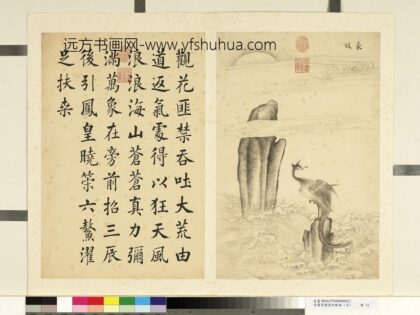 远方书画网-www.yfshuhua.com
豪放
觀花匪禁吞吐大荒由
道返氣處得以狂天風
浪浪海山蒼蒼真力彌
滿萬象在旁前招三辰
後引鳳皇曉策六鰲濯
足扶桒